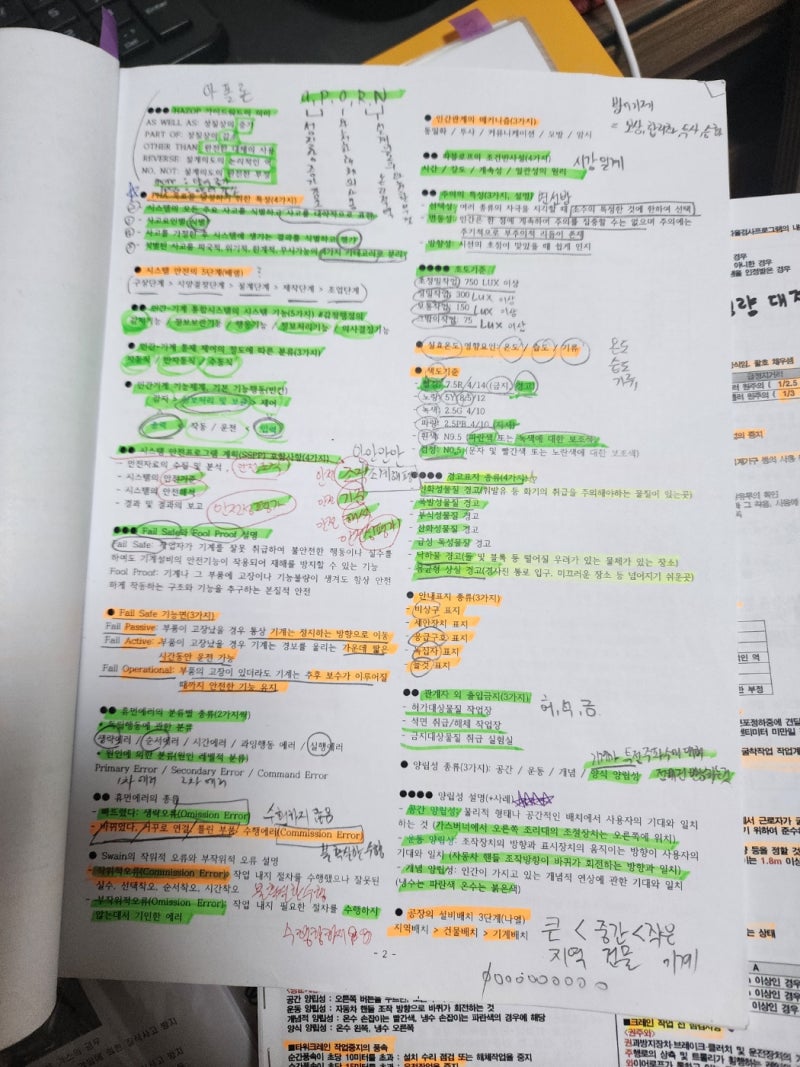 아플론
A.P.O.R.N
●●● HAZOP 가이드워드의 의미
AS WELL AS: 성질상의 증가
PART OF: 성질상의 감소
OTHER THAN: 완전한 대체의 사용
REVERSE: 설계의도의 논리적인 역
NO, NOT: 설계의도의 완전한 부정
● PHA 목표를 달성하기 위한 특징(4가지)
① 시스템의 모든 주요 사고를 식별하고 사고를 대략적으로 표현
② 사고요인별 식별
③ 사고를 가정한 후 시스템에 생기는 결과를 식별하고 평가
④ 식별된 사고를 파국적, 위기적, 한계적, 무시가능의 4가지 카테고리로 분리
● 시스템 안전의 5단계(배열)
구상단계 > 사양결정단계 > 설계단계 > 제작단계 > 조업단계
●● 인간-기계 통합시스템의 시스템 기능(5가지) #감정행정의
감지기능 / 정보보관기능 / 행동기능 / 정보처리기능 / 의사결정기능
● 인간-기계 통제 체계의 정도에 따른 분류(3가지)
자동식 / 반자동식 / 수동식
● 인간기계 기능체계, 기본 기능행동(빈칸)
감지 > 정보처리 및 보관 > 제어
출력 < 작동 / 운전 < 입력
●● 시스템 안전프로그램 계획(SSPP) 포함사항(4가지)
- 안전자료의 수집 및 분석
- 시스템의 안전기준
- 시스템의 안전해석
- 경과 및 결과의 보고
●●● Fail Safe와 Fool Proof 설명
Fail Safe: 작업자가 기계를 잘못 취급하여 불안전한 행동이나 실수를
하여도 기계설비의 안전기능이 작용되어 재해를 방지할 수 있는 기능
Fool Proof: 기계나 그 부품에 고장이나 기능불량이 생겨도 항상 안전
하게 작동하는 구조와 기능을 추구하는 본질적 안전
● Fail Safe 기능면(3가지)
Fail Passive: 부품이 고장났을 경우 통상 기계는 정지하는 방향으로 이동
Fail Active: 부품이 고장났을 경우 기계는 경보를 울리는 가운데 짧은
시간동안 운전 가능
Fail Operational: 부품의 고장이 있더라도 기계는 추후 보수가 이루어질
때까지 안전한 기능 유지
●● 휴먼에러의 분류별 종류(2가지씩)
• 독립행동에 관한 분류
생략에러 / 순서에러 / 시간에러 / 과잉행동 에러 / 실행에러
• 원인에 의한 분류(원인 레벨적 분류)
Primary Error / Secondary Error / Command Error
1차 에러 2차 에러
●● 휴먼에러의 종류
- 빠뜨렸다: 생략오류(Omission Error) 수행하지 않음
- 바뀌었다, 거꾸로 연결, 틀린 부품: 수행에러(Commission Error)
불확실한 수행
● Swain의 작위적 오류와 부작위적 오류 설명
- 작위적오류(Commission Error): 작업 내지 절차를 수행했으나 잘못된
실수, 선택착오, 순서착오, 시간착오
- 부작위적오류(Omission Error): 작업 내지 필요한 절차를 수행하지
않는데서 기인한 에러
● 인간관계의 메커니즘(3가지)
동일화 / 투사 / 커뮤니케이션 / 모방 / 암시
●● 파블로프의 조건반사설(4가지) 시강일계
시간 / 강도 / 계속성 / 일관성의 원리
●● 주의의 특성(3가지, 설명) 변선방
- 선택성: 여러 종류의 자극을 지각할 때 소수의 특정한 것에 한하여 선택
- 변동성: 인간은 한 점에 계속하여 주의를 집중할 수는 없으며 주의에는
주기적으로 부주의적 리듬이 존재
- 방향성: 시선의 초점이 맞았을 때 쉽게 인지
●●●● 조도기준
초정밀작업: 750 LUX 이상
정밀작업: 300 LUX 이상
보통작업: 150 LUX 이상
그밖의작업: 75 LUX 이상
● 실효온도 영향요인: 온도 / 습도 / 기류
온도
습도
기류
● 색도기준
- 빨강: 7.5R 4/14(금지, 경고)
- 노랑: 5Y 8.5/12
- 녹색: 2.5G 4/10
- 파랑: 2.5PB 4/10 (지시)
- 흰색: N9.5 (파란색 또는 녹색에 대한 보조색)
- 검정: N0.5 (문자 및 빨간색 또는 노란색에 대한 보조색)
●●●● 경고표지 종류(4가지)
- 인화성물질 경고(휘발유 등 화기의 취급을 주의해야하는 물질이 있는곳)
- 폭발성물질 경고
- 부식성물질 경고
- 산화성물질 경고
- 급성 독성물질 경고
- 낙하물 경고(돌 및 블록 등 떨어질 우려가 있는 물체가 있는 장소)
- 몸균형 상실 경고(경사진 통로 입구, 미끄러운 장소 등 넘어지기 쉬운곳)
● 안내표지 종류(3가지)
- 비상구 표지
- 세안장치 표지
- 응급구호 표지
- 녹십자 표지
- 들것 표지
●● 관계자 외 출입금지(3가지) 허,석,금
- 허가대상물질 작업장
- 석면 취급/해체 작업장
- 금지대상물질 취급 실험실
● 양립성 종류(3가지): 공간 / 운동 / 개념 / 양식 양립성
●●●● 양립성 설명(+사례)
- 공간 양립성: 물리적 형태나 공간적인 배치에서 사용자의 기대와 일치
하는 것 (가스버너에서 오른쪽 조리대의 조절장치는 오른쪽에 위치)
- 운동 양립성: 조작장치의 방향과 표시장치의 움직이는 방향이 사용자의
기대와 일치 (자동차 핸들 조작방향이 바퀴가 회전하는 방향과 일치)
- 개념 양립성: 인간이 가지고 있는 개념적 연상에 관한 기대와 일치
(냉수는 파란색 온수는 붉은색)
● 공장의 설비배치 3단계(나열)
지역배치 > 건물배치 > 기계배치
큰 < 중간 < 작은
지역 건물 기계
- 2 -
공간 양립성 : 오른쪽 버튼을 누르면,
운동 양립성 : 자동차 핸들 조작 방향으로 바퀴가 회전하는 것
개념적 양립성 : 온수 손잡이는 빨간색, 냉수 손잡이는 파란색의 경우에 해당
양식 양립성 : 온수 왼쪽, 냉수 오른쪽
■타워크레인 작업중지의 풍속
순간풍속이 초당 10미터를 초과 : 설치 수리 점검 또는 해체작업을 중지
■크레인 작업 전 점검사항
<권주와>
권과방지장치·브레이크·클러치 및 운전장치의
주행로의 상측 및 트롤리가 횡행하는